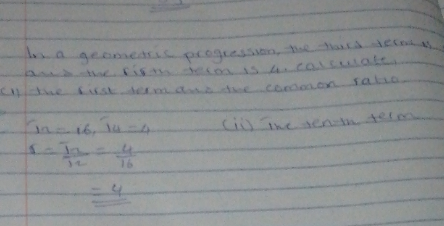 In a geometric progression, the third term is
and the fifth term is 4. calculate,
(i) the first term and the common ratio
(ii) The tenth term
= 16, T4 = 4
= 4/16
= 4